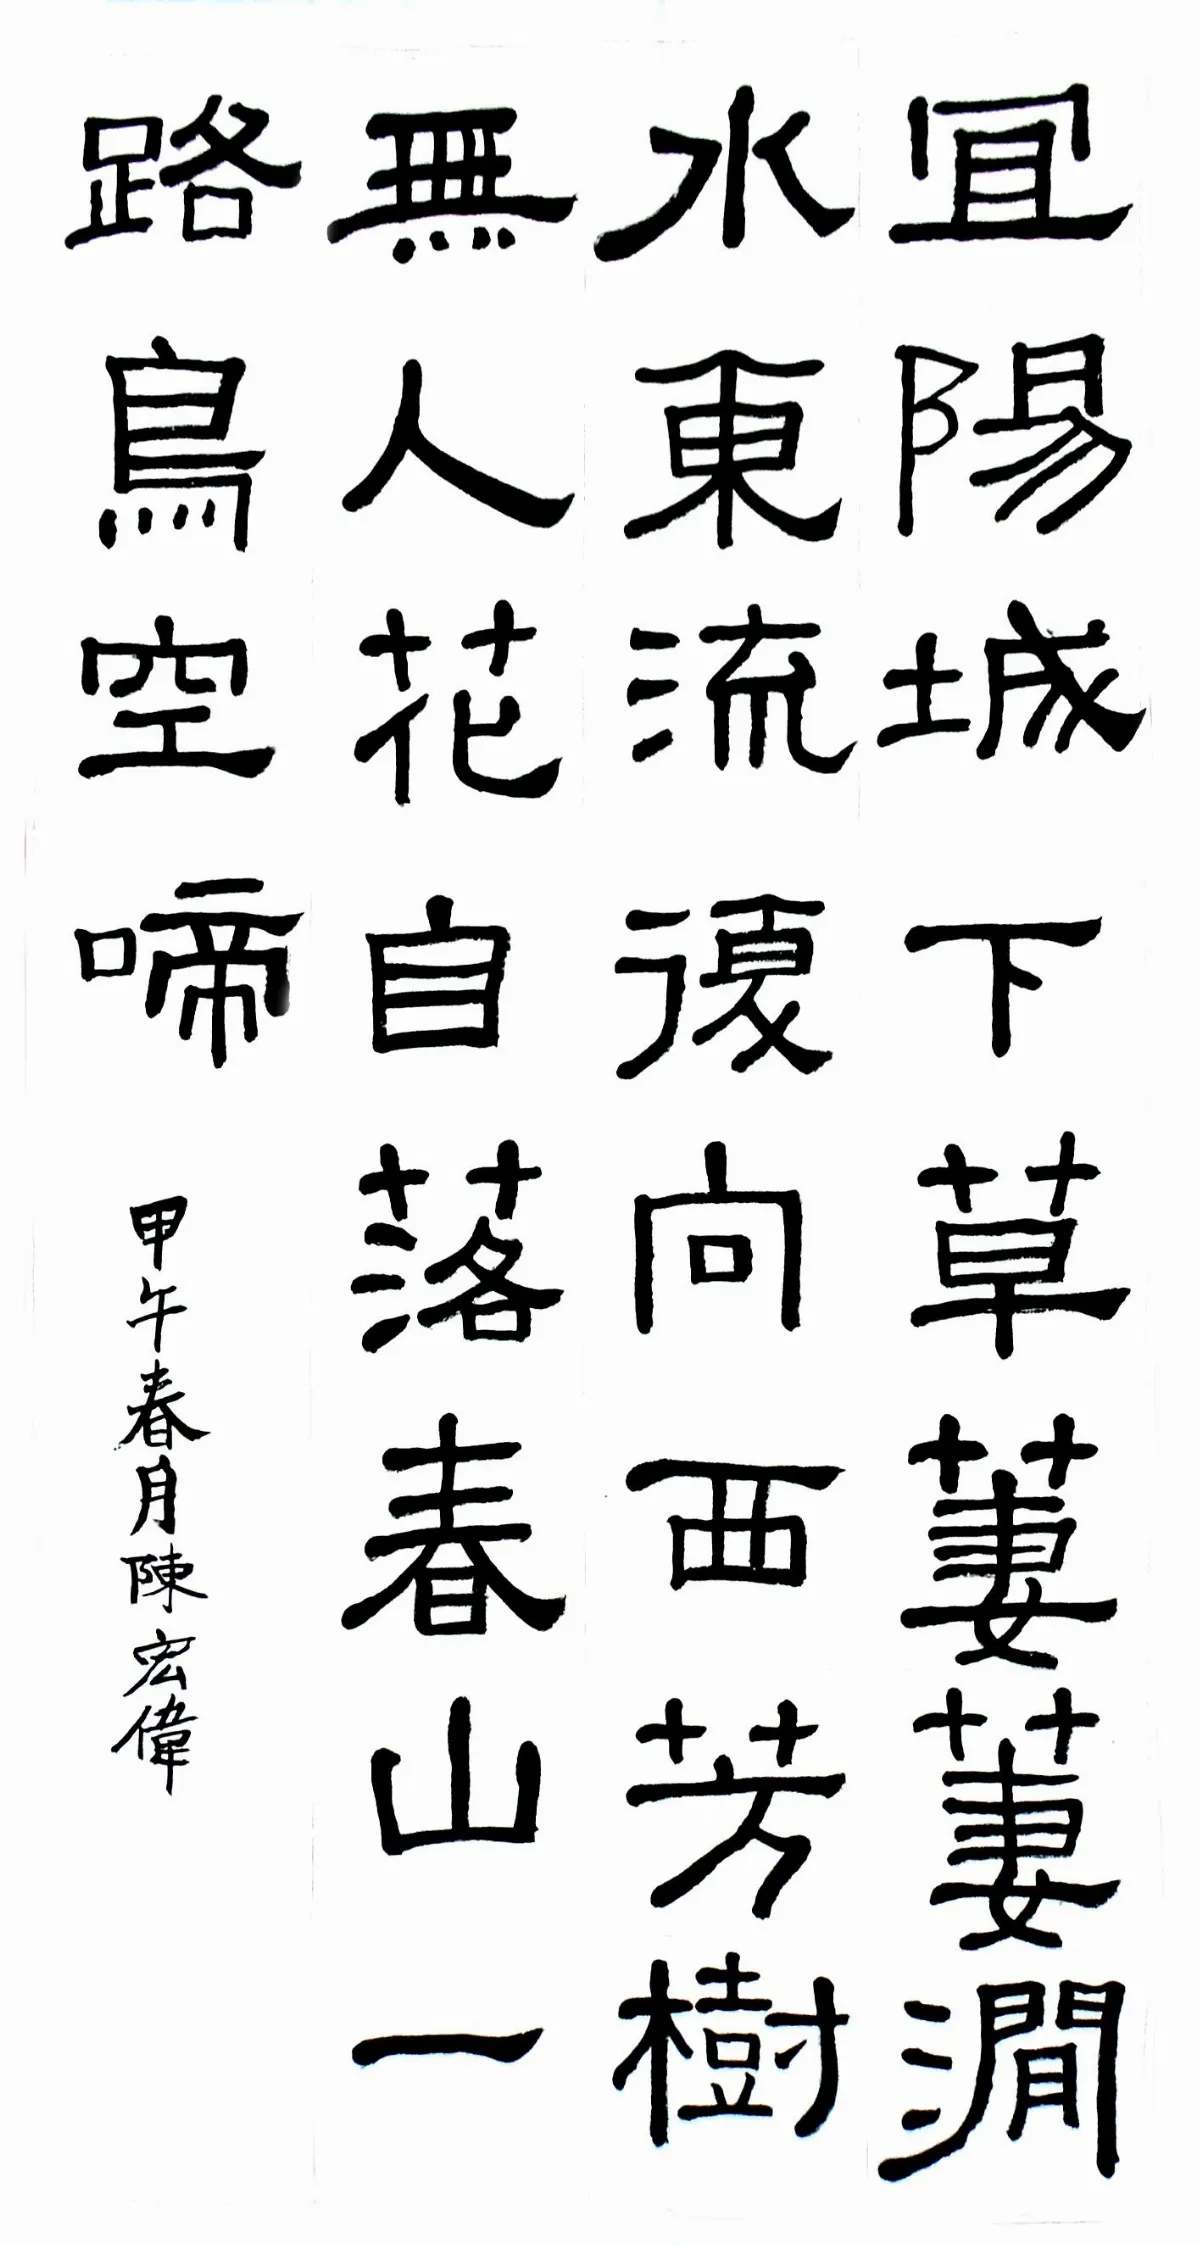 宜陽城下草萋萋澗
水東流復向西芳樹
無人花自落春山一
路鳥空啼
甲午春月陳宏偉